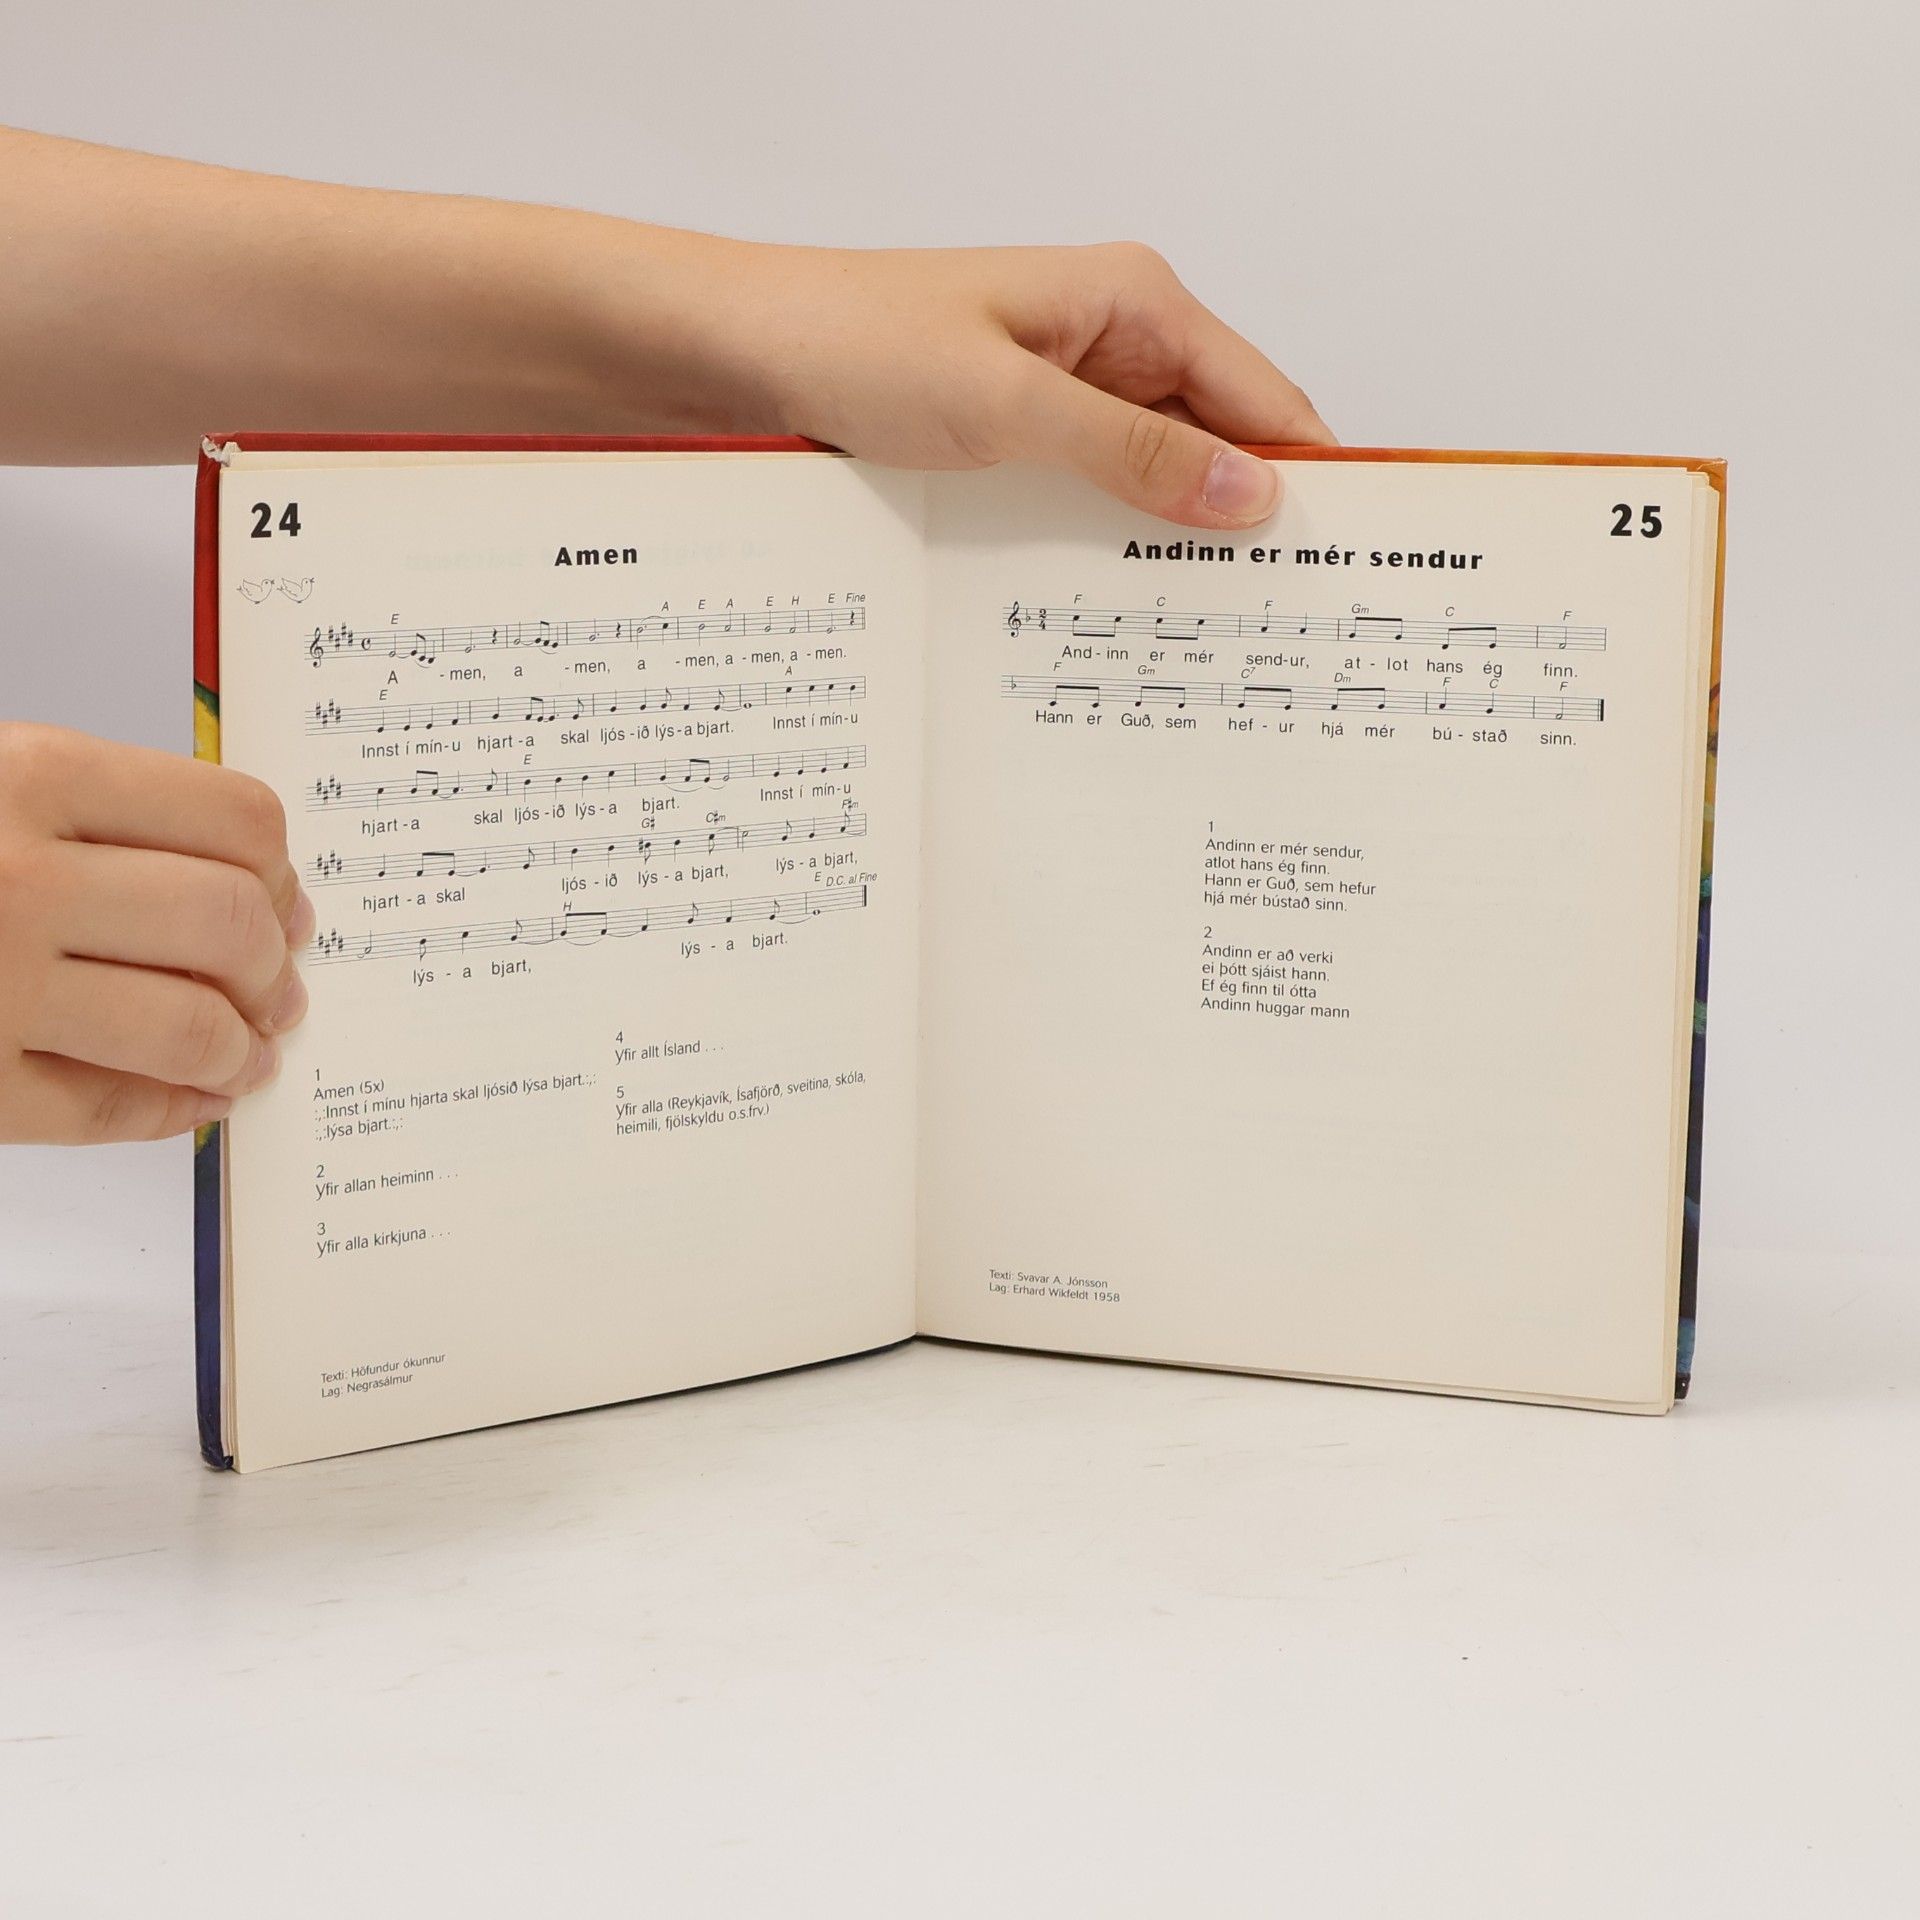 24
Amen
E A E A E H E Fine
A - men, a - men, a - men, a - men, a - men.
E A
Innst í mín-u hjart-a skal ljós-ið lýs-a bjart. Innst í mín-u
E
hjart-a skal ljós-ið lýs-a bjart. Innst í mín-u
G# C#m F#m
hjart-a skal ljós-ið lýs-a bjart, lýs-a bjart,
H E D.C. al Fine
lýs - a bjart, lýs - a bjart.
1
Amen (5x)
:,:Innst í mínu hjarta skal ljósið lýsa bjart.:,:
:,:lýsa bjart.:,:
2
Yfir allan heiminn . . .
3
Yfir alla kirkjuna . . .
4
Yfir allt Ísland . . .
5
Yfir alla (Reykjavík, Ísafjörð, sveitina, skóla,
heimili, fjölskyldu o.s.frv.)
Texti: Höfundur ókunnur
Lag: Negrasálmur
25
Andinn er mér sendur
F C F Gm C F
And-inn er mér send-ur, at-lot hans ég finn.
F Gm C7 Dm F C F
Hann er Guð, sem hef-ur hjá mér bú-stað sinn.
1
Andinn er mér sendur,
atlot hans ég finn.
Hann er Guð, sem hefur
hjá mér bústað sinn.
2
Andinn er að verki
ei þótt sjáist hann.
Ef ég finn til ótta
Andinn huggar mann
Texti: Svavar A. Jónsson
Lag: Erhard Wikfeldt 1958